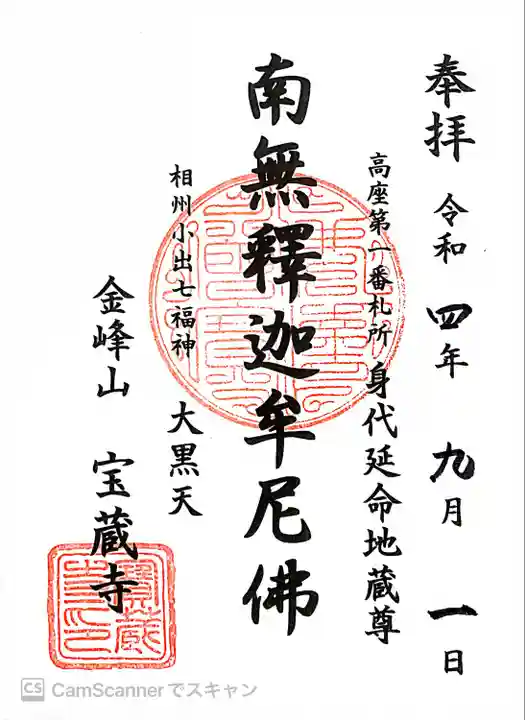 奉拝 令和四年九月一日
高座第一番札所 身代延命地蔵尊
南無釋迦牟尼佛
相州小出七福神 大黒天
金峰山 宝蔵寺
CS CamScannerでスキャン